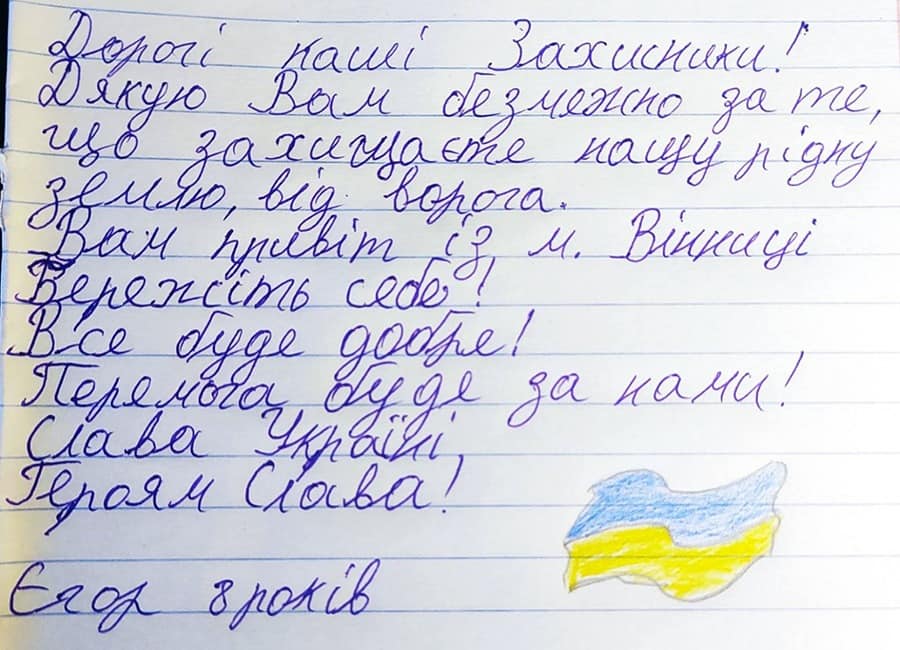 Дорогі наші Захисники!
Дякую Вам безмежно за те,
що захищаєте нашу рідну
землю, від ворога.
Вам привіт із м. Вінниці
Бережіть себе!
Все буде добре!
Перемога буде за нами!
Слава Україні,
Героям Слава!
Єгор 8 років